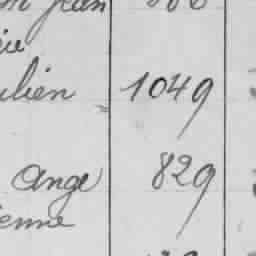 Jean
ulien 1049
Ange 829
enne